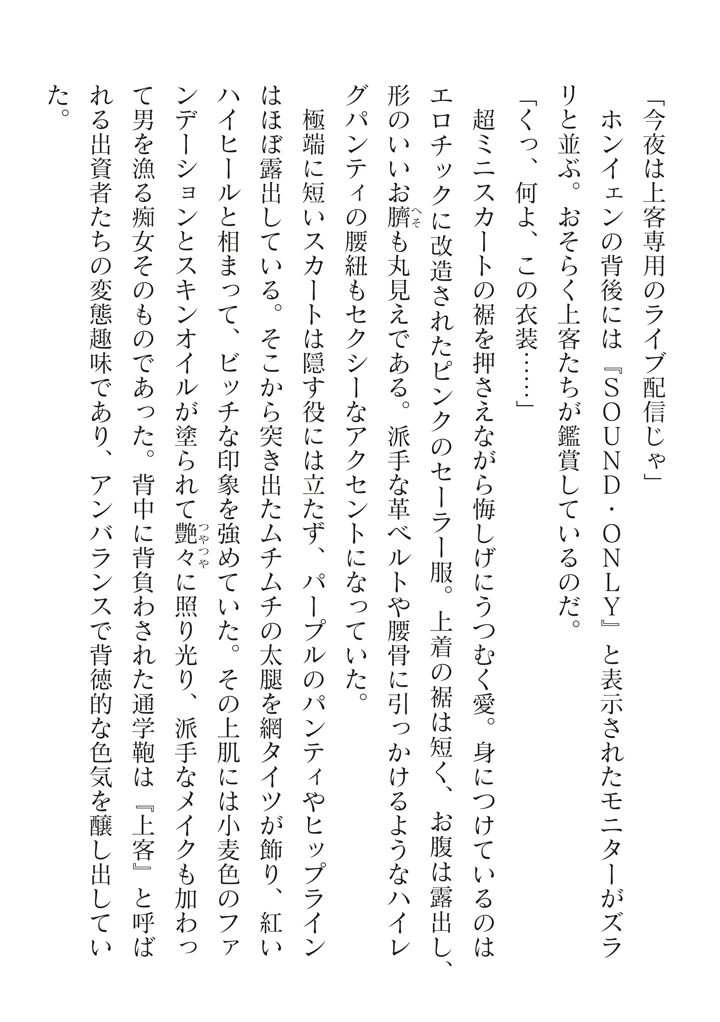 「今夜は上客専用のライブ配信じゃ」
　ホンイェンの背後には『ＳＯＵＮＤ・ＯＮＬＹ』と表示されたモニターがズラ
リと並ぶ。おそらく上客たちが鑑賞しているのだ。
「くっ、何よ、この衣装……」
　超ミニスカートの裾を押さえながら悔しげにうつむく愛。身につけているのは
エロチックに改造されたピンクのセーラー服。上着の裾は短く、お腹は露出し、
形のいいお臍へそも丸見えである。派手な革ベルトや腰骨に引っかけるようなハイレ
グパンティの腰紐もセクシーなアクセントになっていた。
　極端に短いスカートは隠す役には立たず、パープルのパンティやヒップライン
はほぼ露出している。そこから突き出たムチムチの太腿を網タイツが飾り、紅い
ハイヒールと相まって、ビッチな印象を強めていた。その上肌には小麦色のファ
ンデーションとスキンオイルが塗られて艶々つやつやに照り光り、派手なメイクも加わっ
て男を漁る痴女そのものであった。背中に背負わされた通学鞄は『上客』と呼ば
れる出資者たちの変態趣味であり、アンバランスで背徳的な色気を醸し出してい
た。